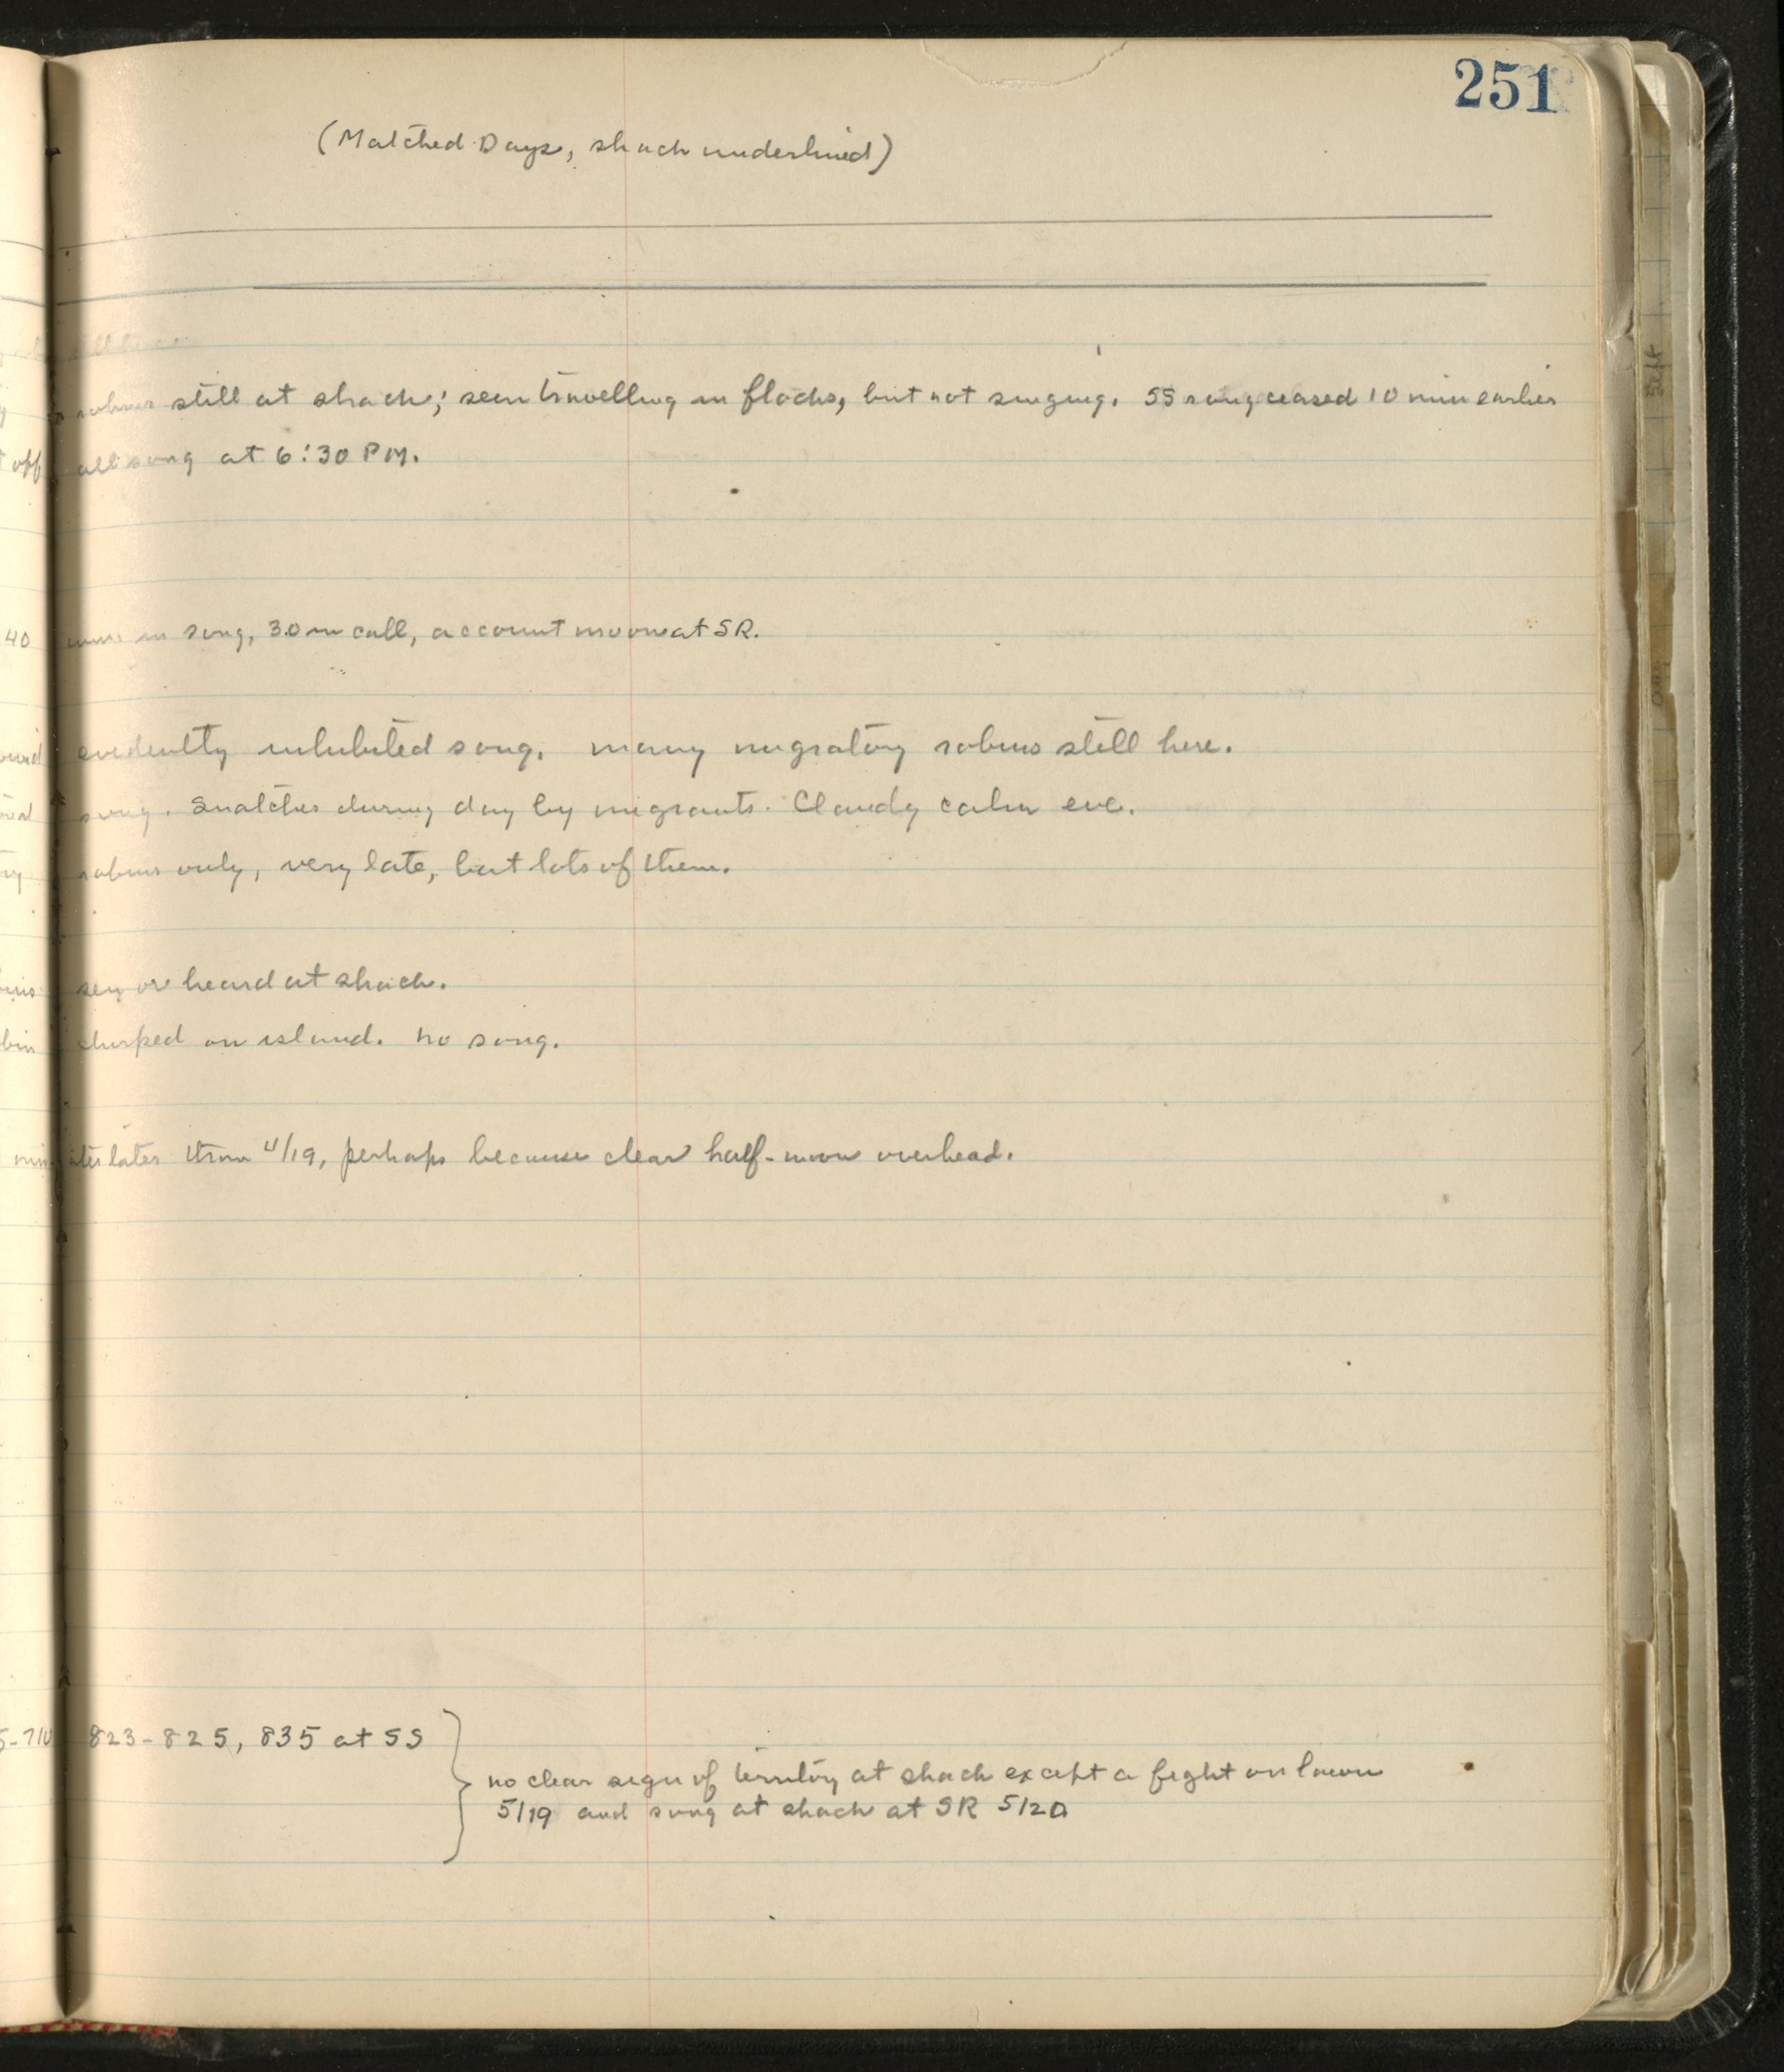 251
(Matched Days, shack underlined)
robins still at shack; seen travelling in flocks, but not singing. SS song ceased 10 min earlier
off all song at 6:30 PM.
40 min in song, 30 in call, account moon at SR.
evidently inhibited song. Many migratory robins still here.
song. Snatches during day by migrants. Cloudy calm eve.
robins only, very late, but lots of them.
seen or heard at shack.
chirped on island. No song.
minutes later than 4/19, perhaps because clear half-moon overhead.
5-710 823-825, 835 at SS
no clear sign of territory at shack except a fight on lawn
5/19 and song at shack at SR 5/20
Sept